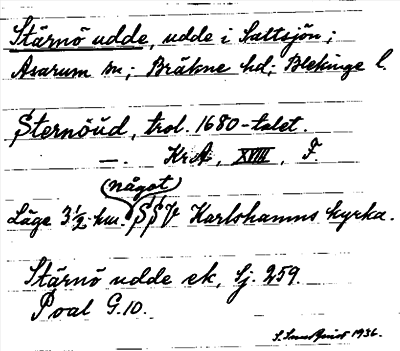 Stärnö udde, udde i Saltsjön;
Asarum sn; Bräkne hd; Blekinge l.
Sternöüd, trol. 1680-talet.
—. KrA, XVIII, F.
(något)
Läge 3½ km. S Karlshamns kyrka.
Stärnö udde ek, Sj. 259.
Poal G.10.
1936.